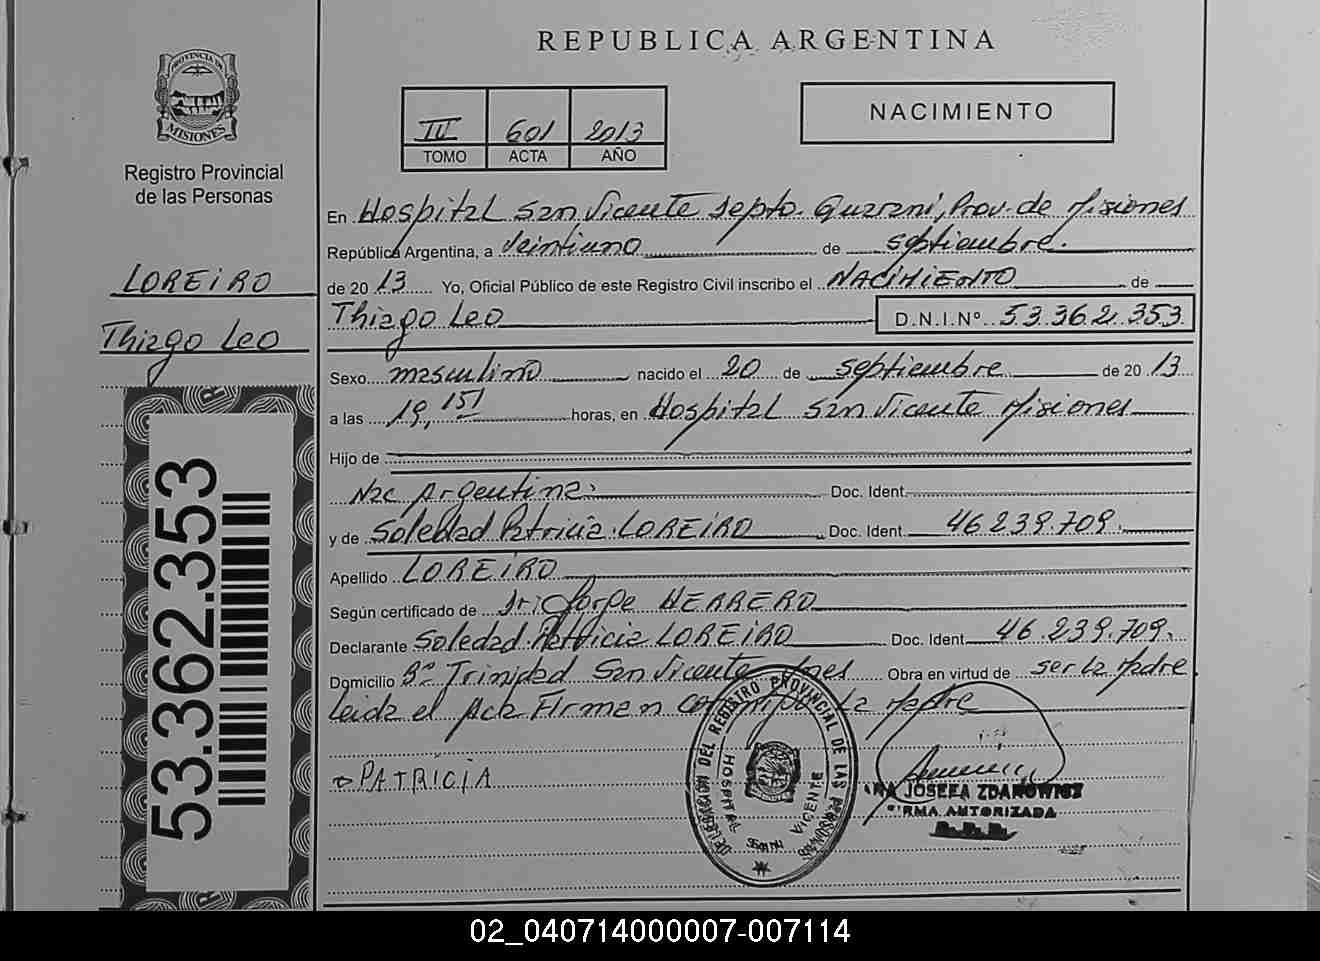 REPUBLICA ARGENTINA
PROVINCIA DE
MISIONES
Registro Provincial
de las Personas
III 601 2013
TOMO ACTA AÑO
NACIMIENTO
LOREIRO
Thiago Leo
53.362.353
En Hospital San Vicente Depto. Guarani, Prov. de Misiones
República Argentina, a Veintiuno de septiembre.
de 2013 Yo, Oficial Público de este Registro Civil inscribo el NACIMIENTO de
Thiago Leo D.N.I.Nº 53.362.353
Sexo masculino nacido el 20 de septiembre de 2013
a las 19,15 horas, en Hospital San Vicente Misiones
Hijo de
Nac Argentina. Doc. Ident.
y de Soledad Patricia LOREIRO Doc. Ident. 46.239.709.
Apellido LOREIRO
Según certificado de Jorge HERRERO
Declarante Soledad Patricia LOREIRO Doc. Ident. 46.239.709.
Domicilio Bº Trinidad San Vicente Mnes Obra en virtud de ser la Madre
Leida el Acta Firman conmigo La Madre
PATRICIA
DELEGACION DEL REGISTRO PROVINCIAL DE LAS PERSONAS
HOSPITAL
VICENTE
JOSEFA ZDANOWICZ
FIRMA AUTORIZADA
02_040714000007-007114